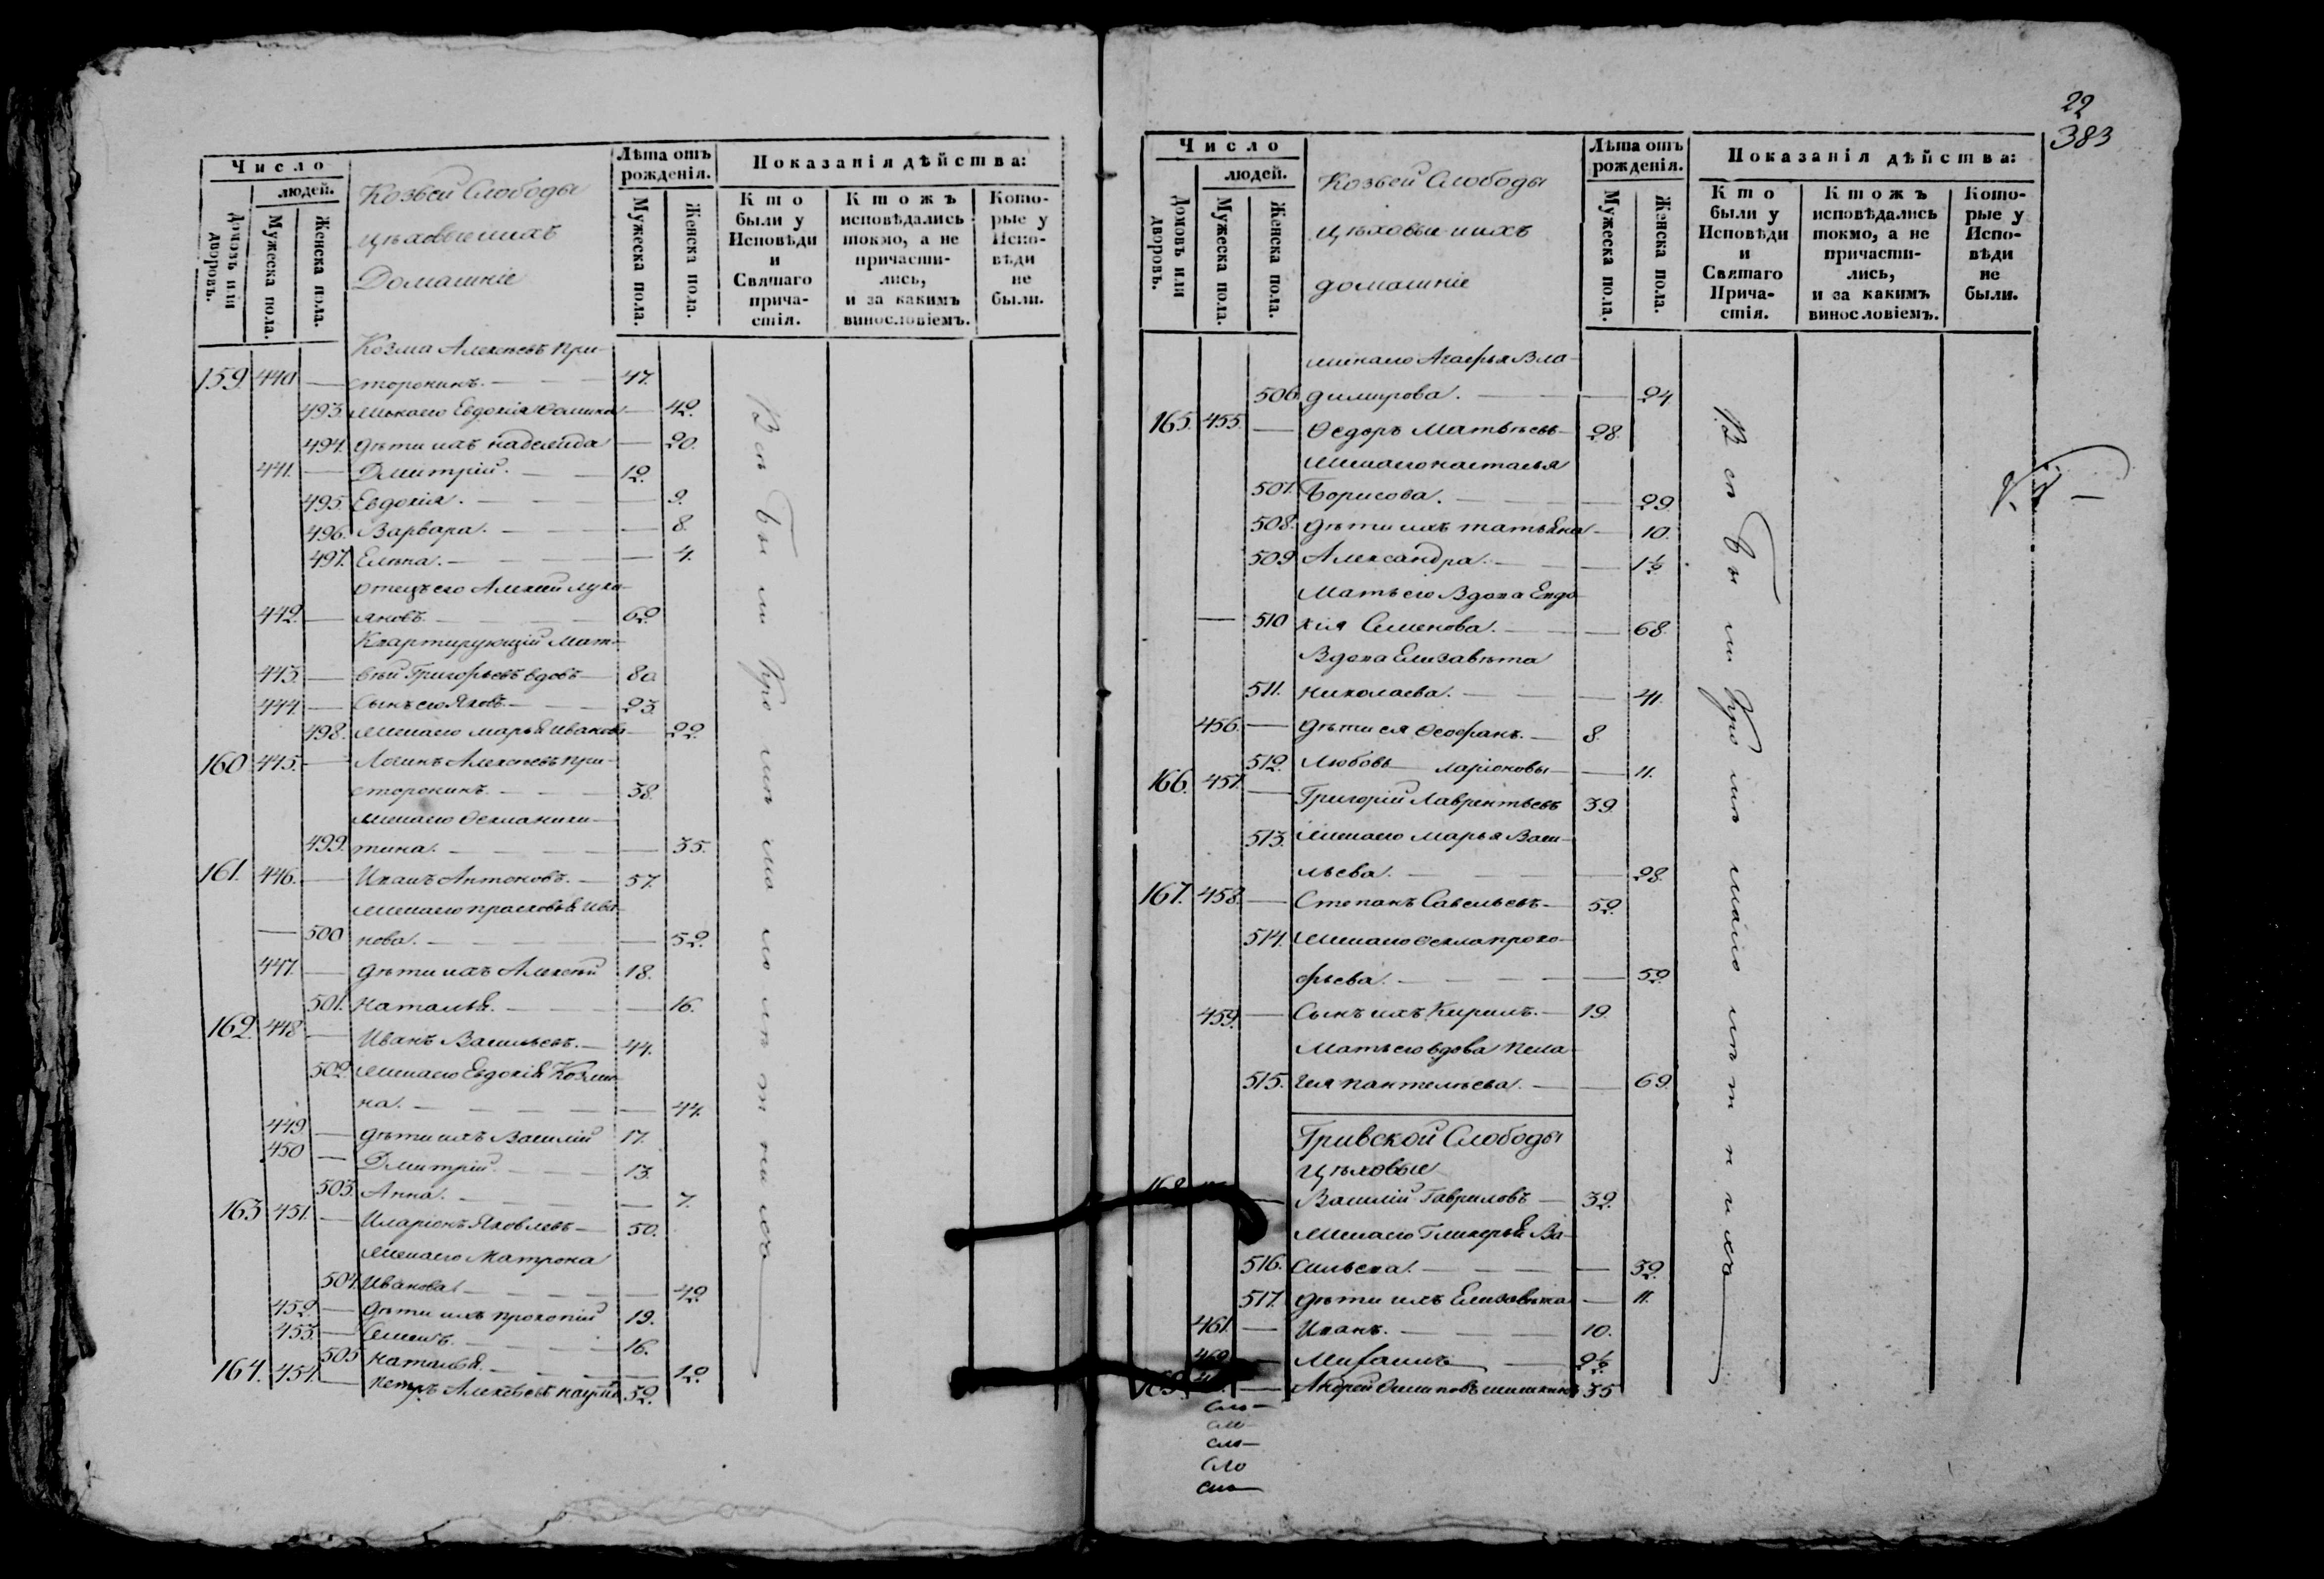 Число
людей.
Домовъ или дворовъ.
Мужеска пола.
Женска пола.
Козьей Слободы
цѣховые и ихъ
Домашніе
Лѣта отъ рожденія.
Мужеска пола.
Женска пола.
Показанія дѣйства:
Кто были у Исповѣди и Святаго причастія.
Ктожъ исповѣдались токмо, а не причастились, и за какимъ винословіемъ.
Которые у Исповѣди не были.
Козма Алексѣевъ При-
159. 440. — сторонинъ. — 47.
493. жена его Евдокія Фомина — 42.
494. дѣти ихъ надежда — 20.
441. — Дмитрій. — 12.
495. Евдокія. — 9.
496. Варвара. — 8.
497. Елена. — 4.
отецъ его Алексѣй Лука-
442. — яновъ. — 62
Квартирующій Мат-
443. — вѣй Григорьевъ вдовъ — 80.
444. — Сынъ его Яковъ — 23.
498. жена его марья иванова — 22.
160 445. — Логинъ Алексѣевъ при-
сторонинъ. — 38.
жена его Фекла ники-
499. тина. — 35.
161. 446. — Иванъ Антоновъ. — 57.
жена его прасковья ива-
— 500 нова. — 52.
447. — дѣти ихъ Алексѣй 18.
501. наталья. — 16.
162. 448 — Иванъ Васильевъ. — 44.
502. жена его Евдокія Козми-
на. — 44.
449. — дѣти ихъ Василій 17.
450 — Дмитрій. — 13.
503. Анна. — 7.
163 451. — Иларіонъ Яковлевъ — 50.
жена его Матрона
504. Иванова — 42
452. — дѣти ихъ прокопій 19.
453. — Семенъ. — 16.
505 наталья. — 12
164. 454. — петръ Алексѣевъ 52.
Всѣ были кромѣ малолѣтныхъ
22
383
Число
людей.
Домовъ или дворовъ.
Мужеска пола.
Женска пола.
Козьей Слободы
цѣховые и ихъ
домашніе
Лѣта отъ рожденія.
Мужеска пола.
Женска пола.
Показанія дѣйства:
Кто были у Исповѣди и Святаго Причастія.
Ктожъ исповѣдались токмо, а не причастились, и за какимъ винословіемъ.
Которые у Исповѣди не были.
жена его Агафья Вла-
506. димирова. — 24.
165. 455. — Ѳедоръ Матвѣевъ — 28.
жена его настасья
507. Борисова. — 29.
508. дѣти ихъ татьяна — 10.
509 Александра. — 1½
Мать его Вдова Евдо-
— 510 кія Семенова. — 68.
Вдова Елизавета
511. николаева. — 41.
456. — дѣти ея Ѳеофанъ. — 8.
512. Любовь ларіоновы — 11.
166. 457. — Григорій Лаврентьевъ 39.
513. жена его марья Васи-
льева. — 28.
167. 458. — Степанъ Савельевъ — 52.
514. жена его Ѳекла проко-
фьева. — 52
459. — Сынъ ихъ Кирилъ. — 19.
Мать его вдова пела-
515. гея пантелѣева. — 69.
Гривской Слободы
цѣховые
168 — Василій Гавриловъ — 32.
жена его Гликерья Ва-
516. сильева. — 32.
517. дѣти ихъ Елизавета — 11.
461. — Иванъ. — 10.
462 — Михаилъ — 2½
169. — Андрей Осиповъ шишкинъ 35
Всѣ были кромѣ малолѣтныхъ